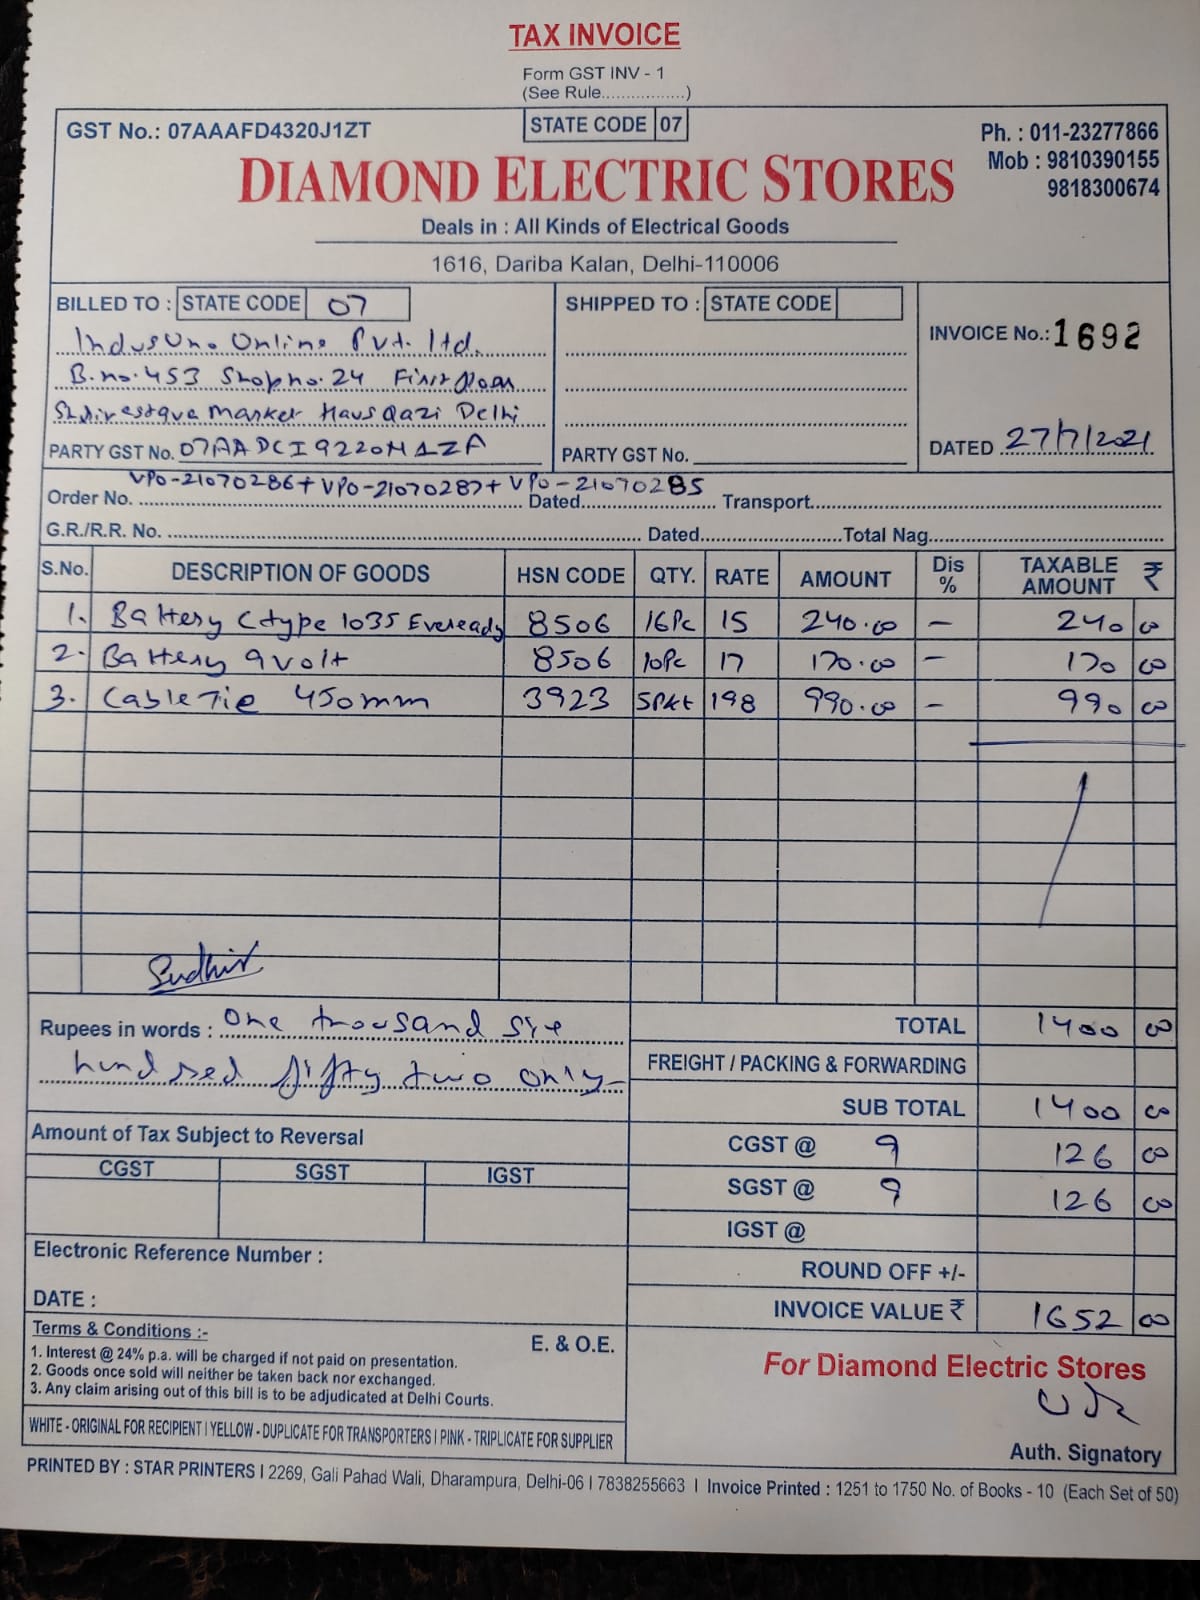 TAX INVOICE
Form GST INV - 1
(See Rule.................)
GST No.: 07AAAFD4320J1ZT
STATE CODE 07
Ph. : 011-23277866
Mob : 9810390155
9818300674
DIAMOND ELECTRIC STORES
Deals in : All Kinds of Electrical Goods
1616, Dariba Kalan, Delhi-110006
BILLED TO : STATE CODE 07
IndusUno Online Pvt. ltd.
B.no.453 Shop no.24 First floor
market Haus Qazi Delhi
PARTY GST No. 07AADCI9220M1ZA
SHIPPED TO : STATE CODE
PARTY GST No.
INVOICE No.: 1692
DATED 27/7/2021
VPO-21070286+ VPO-21070287+ VPO-21070285
Order No. Dated Transport
G.R./R.R. No. Dated Total Nag
S.No. DESCRIPTION OF GOODS HSN CODE QTY. RATE AMOUNT Dis % TAXABLE AMOUNT ₹
1. Battery C type 1035 Eveready 8506 16Pc 15 240.00 – 240 00
2. Battery 9volt 8506 10Pc 17 170.00 – 170 00
3. Cable Tie 450mm 3923 5Pkt 198 990.00 – 990 00
Sudhir
Rupees in words : One thousand six
hundred fifty two only
TOTAL 1400 00
FREIGHT / PACKING & FORWARDING
SUB TOTAL 1400 00
CGST @ 9 126 00
SGST @ 9 126 00
IGST @
ROUND OFF +/-
INVOICE VALUE ₹ 1652 00
Amount of Tax Subject to Reversal
CGST SGST IGST
Electronic Reference Number :
DATE :
Terms & Conditions :-
E. & O.E.
1. Interest @ 24% p.a. will be charged if not paid on presentation.
2. Goods once sold will neither be taken back nor exchanged.
3. Any claim arising out of this bill is to be adjudicated at Delhi Courts.
WHITE - ORIGINAL FOR RECIPIENT | YELLOW - DUPLICATE FOR TRANSPORTERS | PINK - TRIPLICATE FOR SUPPLIER
For Diamond Electric Stores
Auth. Signatory
PRINTED BY : STAR PRINTERS | 2269, Gali Pahad Wali, Dharampura, Delhi-06 | 7838255663 | Invoice Printed : 1251 to 1750 No. of Books - 10 (Each Set of 50)